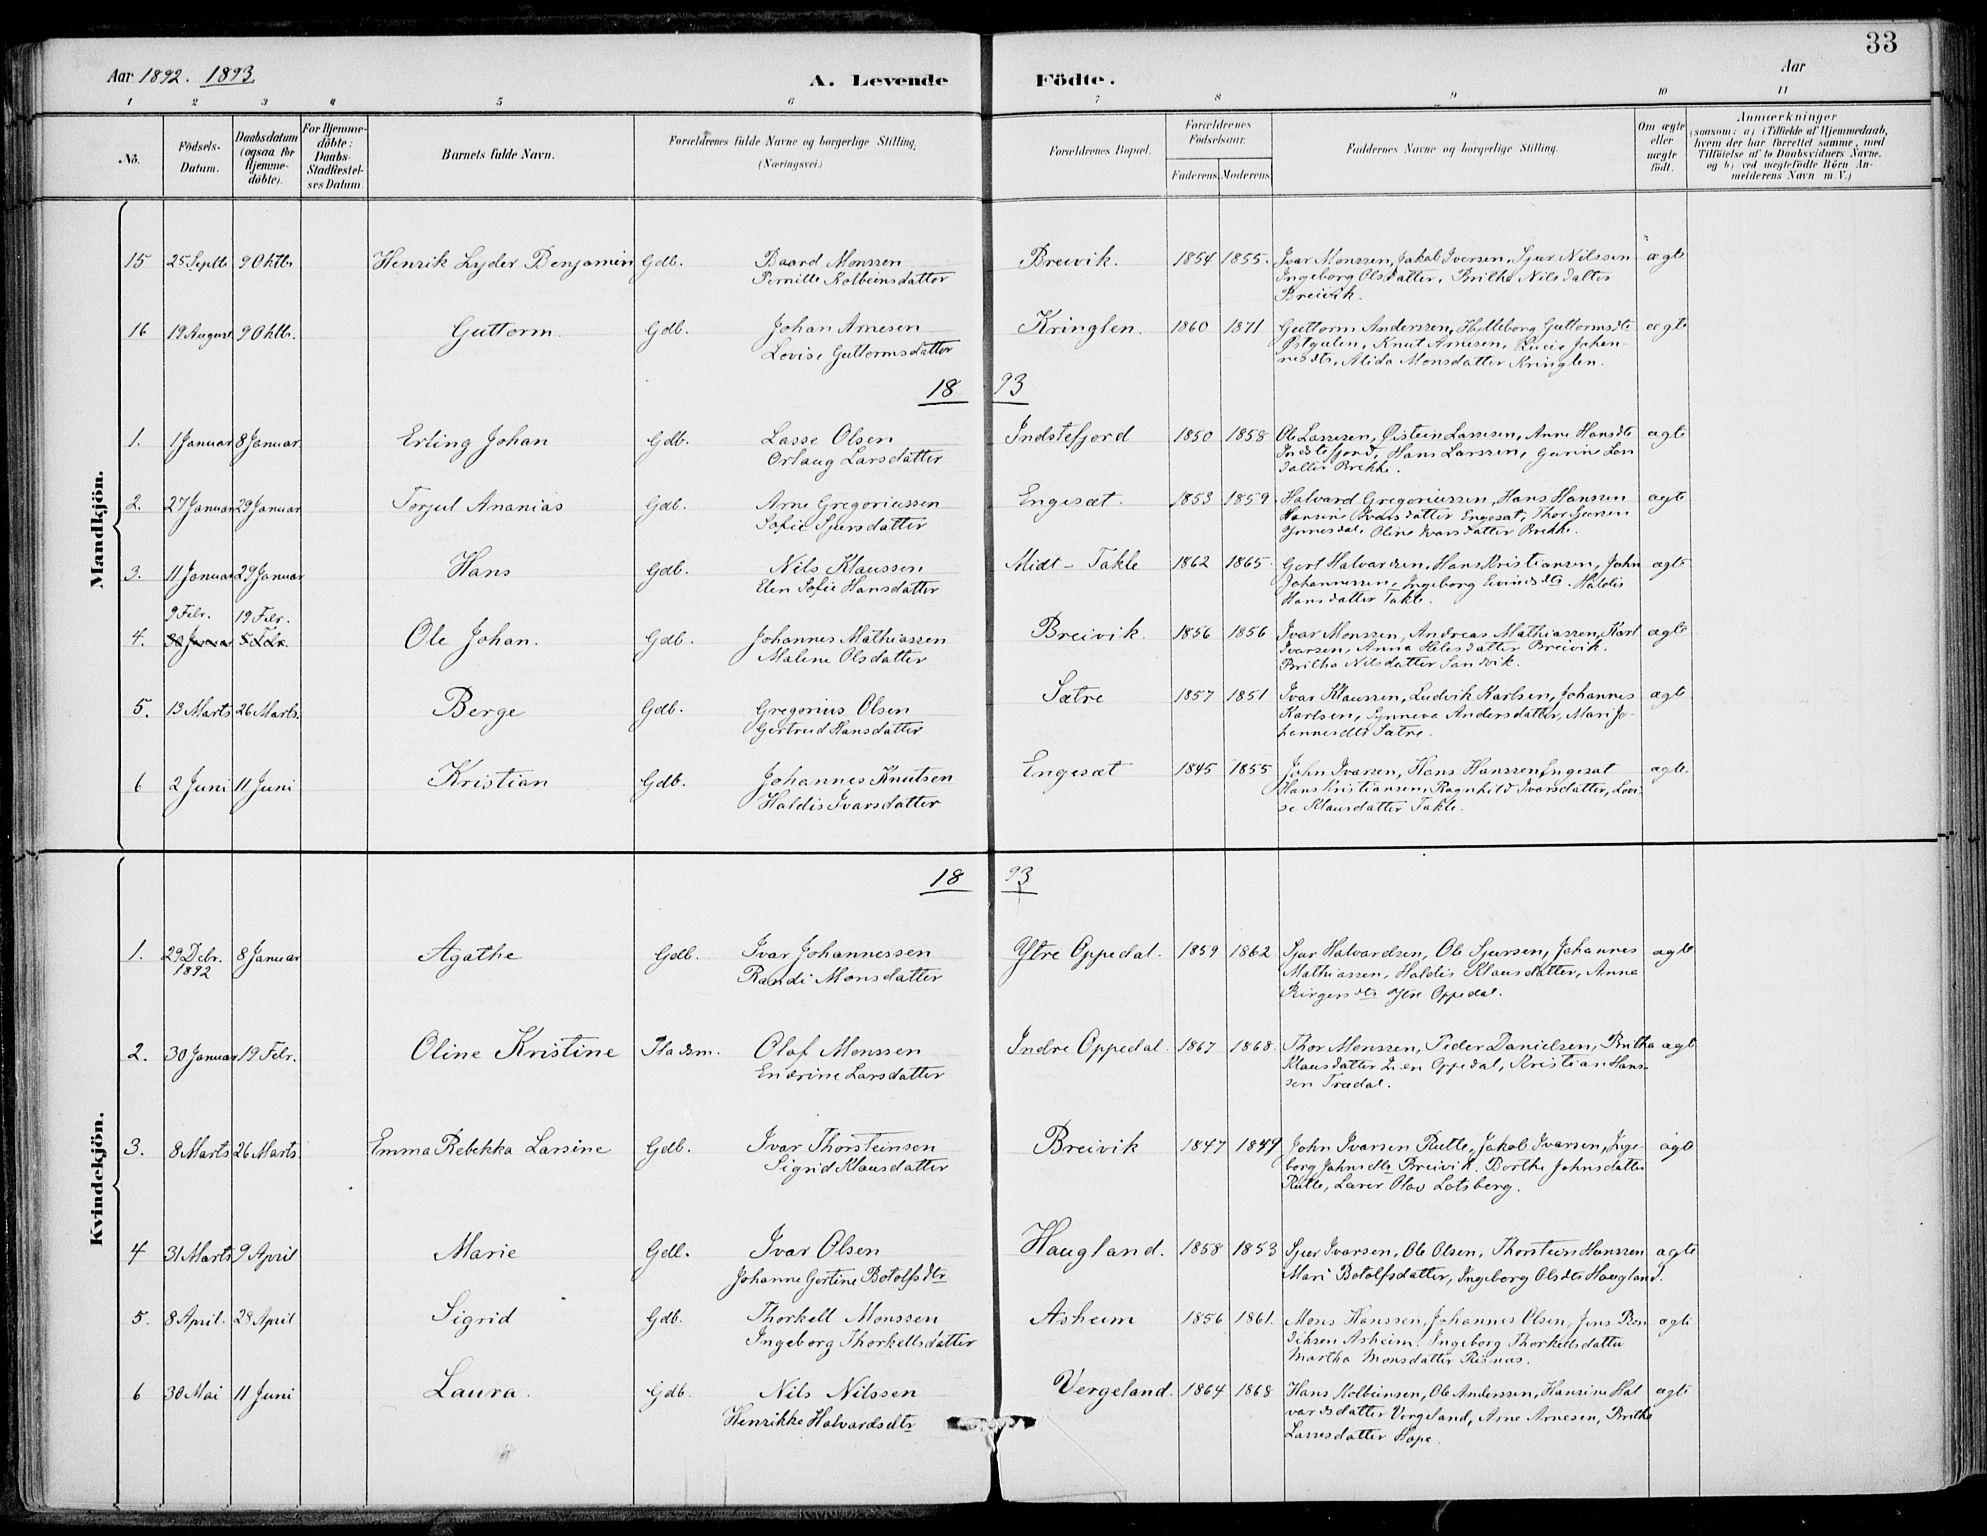 33
Aar 1892. 1893
A. Levende Födte.
Aar
1 2 3 4 5 6 7 8 9 10 11
No. Födsels-Datum. Daabsdatum (ogsaa for Hjemme-döbte). For Hjemme-döbte: Daabs-Stadfæstel-ses Datum. Barnets fulde Navn. Forældrenes fulde Navne og borgerlige Stilling. (Næringsvei.) Forældrenes Bopæl. Forældrenes Födselsaar. Faderens Moderens Faddernes Navne og borgerlige Stilling. Om ægte eller uægte födt. Anmærkninger (saasom: a) i Tilfælde af Hjemmedaab, hvem der har forrettet samme, med Tilföielse af to Daabsvidners Navne, og b) ved uægtefödte Börn An-melderens Navn m. V.)
Mandkjön.
15 25 Septb 9 Oktb. Henrik Lyder Benjamin Gdb. Baard Monssen Breivik. 1854 1855. Ivar Monssen, Jakob Iversen, Sjur Nilssen ægte
Pernille Kolbeinsdatter Ingeborg Olsdatter, Britha Nilsdatter
Breivik.
16 19 August 9 Oktb. Guttorm. Gdb. Johan Arnesen Kringlen. 1860 1871 Guttorm Anderssen, Guttormsdt ægte
Lovise Guttormsdatter Østgulen, Knut Arnesen, Lucie Johan-
nesdt, Alida Monsdatter Kringlen.
18 93
1. 1 Januar 8 Januar. Erling Johan Gdb. Lasse Olsen Indstefjord 1850 1858 Ole Lassesen, Øistein Lassesen, Anne Hansdt ægte
Orlaug Larsdatter Indstefjord, Hans Larssen, Gurine Lars
datter Brekke.
2. 27 Januar 29 Januar Torjul Ananias Gdb. Arne Gregoriussen Engesæt 1853 1859. Halvard Gregoriussen, Hans Hanssen ægte
Sofie Sjursdatter Hansine Ivarsdatter Engesæt, Thor
Ynnesdal, Oline Ivarsdatter Brekke.
3. 11 Januar 29 Januar Hans Gdb. Nils Klaussen Midt-Takle 1862 1865. Gert Halvardsen, Hans Kristiansen, John ægte
Elen Sofie Hansdatter Johannessen, Ingeborg Eivindsdt. Haldis
Hansdatter Takle.
9 Febr. 19 Febr.
4. 30 Januar 5 Febr. Ole Johan. Gdb. Johannes Mathiassen Breivik. 1856 1856 Ivar Monssen, Andreas Mathiassen, Karl ægte
Malene Olsdatter Ivarsen, Anna Breivik.
Britha Nilsdatter Sandvik.
5. 13 Marts 26 Marts. Berge Gdb. Gregorius Olsen Sætre 1857 1851 Ivar Klaussen, Ludvik Karlsen, Johannes ægte
Gertrud Hansdatter Karlsen, Synneva Andersdatter, Mari Jo-
hannesdt Sætre.
6 2 Juni 11 Juni Kristian Gdb. Johannes Knutsen Engesæt 1845 1855 John Ivarsen, Hans Hanssen Engesæt ægte.
Haldis Ivarsdatter Hans Kristiansen, Ragnhild Ivarsdatter, Lovi-
se Klausdatter Takle.
Kvindekjön.
18 93
1. 29 Debr. 8 Januar Agathe Gdb. Ivar Johannessen Ytre Oppedal. 1859 1862 Sjur Halvardsen, Ole Sjursen, Johannes ægte
1892 Randi Monsdatter Mathiassen, Haldis Klausdatter, Anna
Birgersdt Ytre Oppedal.
2. 30 Januar 19 Febr. Oline Kristine Pladsm. Olaf Monssen Indre Oppedal. 1867 1868. Thor Monssen, Peder Danielsen, Britha ægt
Endrine Larsdatter Klausdatter Oppedal, Kristian Hans-
sen Trædal.
3. 8 Marts 26 Marts Emma Rebekka Larsine Gdb. Ivar Thorsteinsen Breivik 1847 1849 John Ivarsen Rutle, Jakob Ivarsen, Inge- ægte
Sigrid Klausdatter borg Johnsdt Breivik. Borthe Johnsdatter
Rutle, Lærer Olav Lotsberg.
4 31 Marts 9 April Marie Gdb. Ivar Olsen Haugland. 1858 1853 Sjur Ivarsen, Ole Olsen, Thorstein Hanssen ægte
Johanne Gertine Botolfsdtr Mari Botolfsdatter, Ingeborg Olsdt Haugland.
5. 8 April. 28 April Sigrid Gdb. Thorkell Monssen Asheim 1856 1861. Mons Hanssen, Johannes Olsen, Jens Ben ægte
Ingeborg Thorkellsdatter dihsen Asheim. Ingeborg Thorkellsdatter
Martha Monsdatter Risnæs.
6 30 Mai 11 Juni Laura. Gdb. Nils Nilssen Vergeland. 1864 1868 Hans Kolbeinsen, Ole Anderssen, Hansine Hal ægte
Henrikke Halvardsdtr vardsdatter Vergeland, Arne Arnesen, Britha
Lassesdatter Hope.